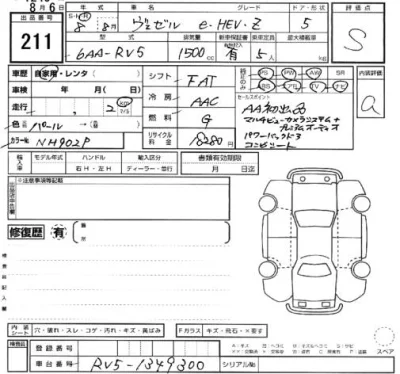 8月6日
出品番号
211
S・H・R
8年8月
ヴェゼル
e-HEV・Z
グレード
ドア・形状
5
評価
S
型式
排気量
新車保証書
乗車定員
最大積載量
6AA-RV5
1500cc
有
5人
車歴
自家用・レンタ
シフト
FAT
PS
PW
AW
SR
TV
ナビ
内装評価
a
車検
年 月(日まで)
冷房
AAC
セールスポイント
AA初出品
マルチビューカメラシステム+
プレミアムオーディオ
パワーバックドア
コンビシート
走行
2
色
パール
燃料
G
カラーNo.
NH902P
リサイクル料金
18280円
輸入車
モデル年式
ハンドル
輸入区分
書類有効期限
右H・左H
ディーラー・並行
月 日迄
※注意事項等記載
修復歴
有
内装シート
穴・破れ・スレ・コゲ・汚れ・キズ・黄ばみ
Fガラス
キズ・飛石・×要す
スペア
検査員
登録番号
車台番号
RV5-1349300
シリアルNo.